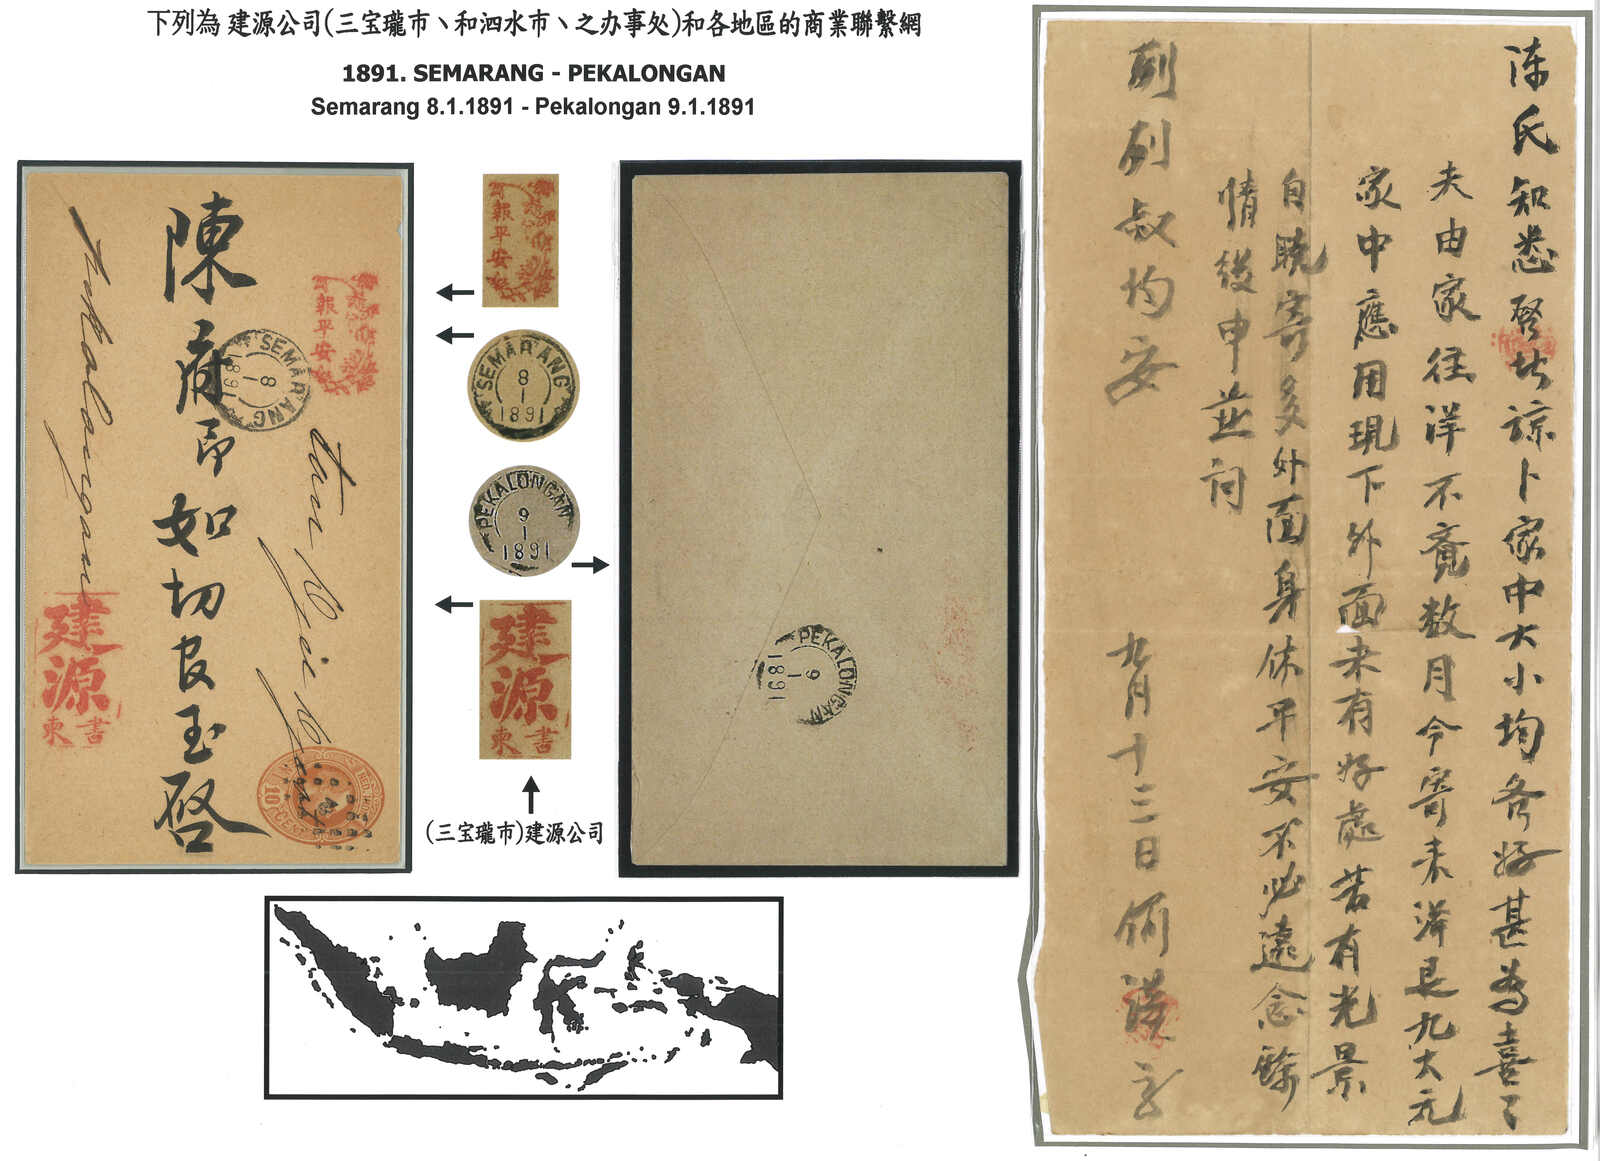 下列為 建源公司(三宝瓏市、和泗水市、之办事处)和各地區的商業聯繫網
1891. SEMARANG - PEKALONGAN
Semarang 8.1.1891 - Pekalongan 9.1.1891
陳府卬如切良玉啓
報平安
SEMARANG
8
1
1891
建源
柬書
Pekalongan
10 CENT
報平安
SEMARANG
8
1
1891
PEKALONGAN
9
1
1891
建源
柬書
(三宝瓏市)建源公司
PEKALONGAN
9
1
1891
陈氏知悉啓者諒卜家中大小均各好甚為喜了
夫由家往洋不覺数月今寄来洋艮九大元
家中應用現下外面未有好處若有光景
自曉寄多外面身体平安不必遠念餘
情後申並询
列列叔均安
九月十三日